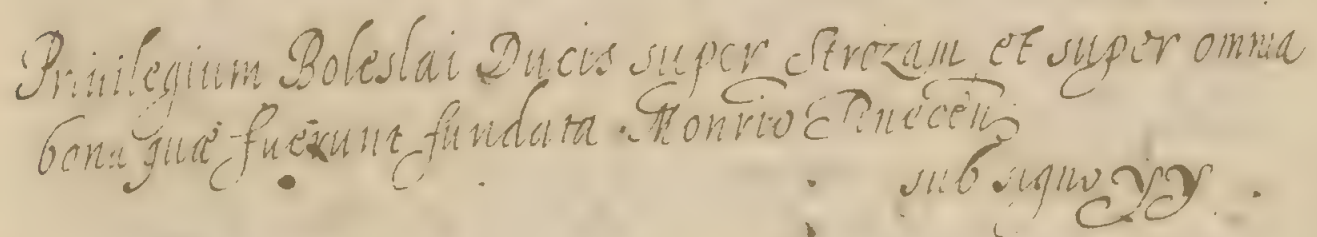 Priuilegium Boleslai Ducis super Strozam et super omnia
bona quæ fuerunt fundata Monrio Tinecen
sub signo yy.